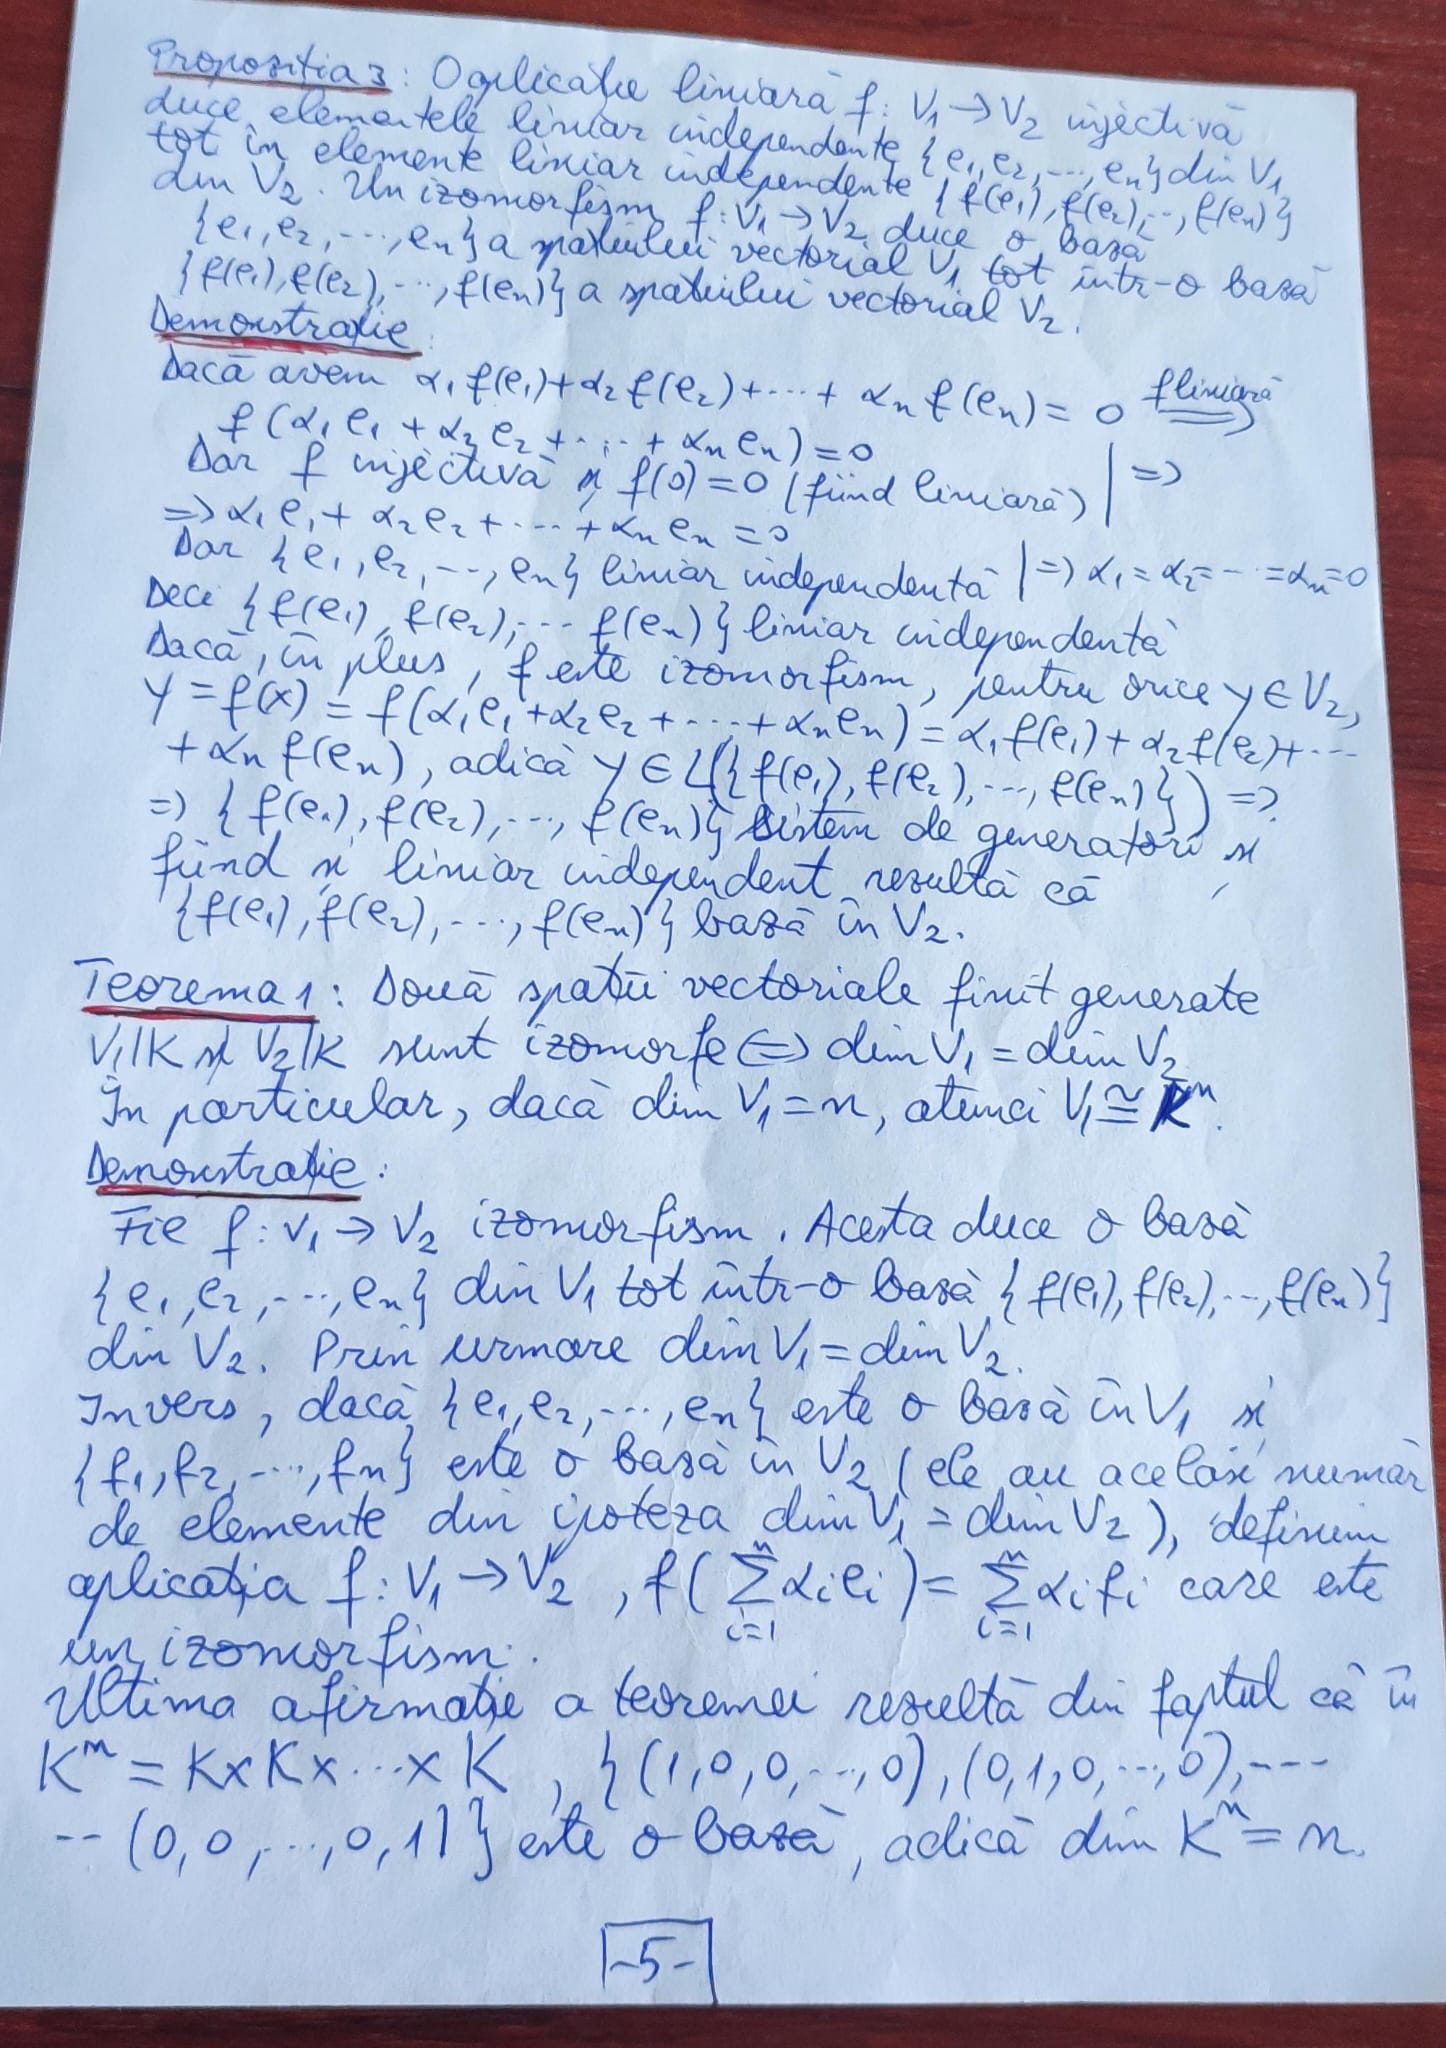 Propoziția 3: O aplicație liniară f: V₁→V₂ injectivă
duce elementele liniar independente {e₁,e₂,...,eₙ} din V₁
tot în elemente liniar independente {f(e₁),f(e₂),...,f(eₙ)}
din V₂. Un izomorfism f:V₁→V₂ duce o bază
{e₁,e₂,...,eₙ} a spațiului vectorial V₁ tot într-o bază
{f(e₁),f(e₂),...,f(eₙ)} a spațiului vectorial V₂.
Demonstrație:
Dacă avem α₁f(e₁)+α₂f(e₂)+...+αₙf(eₙ)=0 =f liniară=>
f(α₁e₁+α₂e₂+...+αₙeₙ)=0
Dar f injectivă și f(0)=0 (fiind liniară) | =>
=>α₁e₁+α₂e₂+...+αₙeₙ=0
Dar {e₁,e₂,...,eₙ} liniar independentă | =>α₁=α₂=...=αₙ=0
Deci {f(e₁),f(e₂),...f(eₙ)} liniar independentă
Dacă, în plus, f este izomorfism, pentru orice y∈V₂,
y=f(x)=f(α₁e₁+α₂e₂+...+αₙeₙ)=α₁f(e₁)+α₂f(e₂)+...
+αₙf(eₙ), adică y∈L({f(e₁),f(e₂),...,f(eₙ)}) =>
=> {f(e₁),f(e₂),...,f(eₙ)} sistem de generatori și
fiind și liniar independent rezultă că
{f(e₁),f(e₂),...,f(eₙ)} bază în V₂.
Teorema 1: Două spații vectoriale finit generate
V₁|K și V₂|K sunt izomorfe <=> dim V₁=dim V₂
În particular, dacă dim V₁=n, atunci V₁≅Kⁿ.
Demonstrație:
Fie f:V₁→V₂ izomorfism. Acesta duce o bază
{e₁,e₂,...,eₙ} din V₁ tot într-o bază {f(e₁),f(e₂),...,f(eₙ)}
din V₂. Prin urmare dim V₁=dim V₂.
Invers, dacă {e₁,e₂,...,eₙ} este o bază în V₁ și
{f₁,f₂,...,fₙ} este o bază în V₂ (ele au același număr
de elemente din ipoteza dim V₁=dim V₂), definim
aplicația f:V₁→V₂, f(∑ⁿᵢ₌₁ αᵢeᵢ)=∑ⁿᵢ₌₁ αᵢfᵢ care este
un izomorfism.
Ultima afirmație a teoremei rezultă din faptul că în
Kⁿ=K×K×...×K, {(1,0,0,...,0),(0,1,0,...,0),----
--(0,0,...,0,1)} este o bază, adică dim Kⁿ=n.
-5-